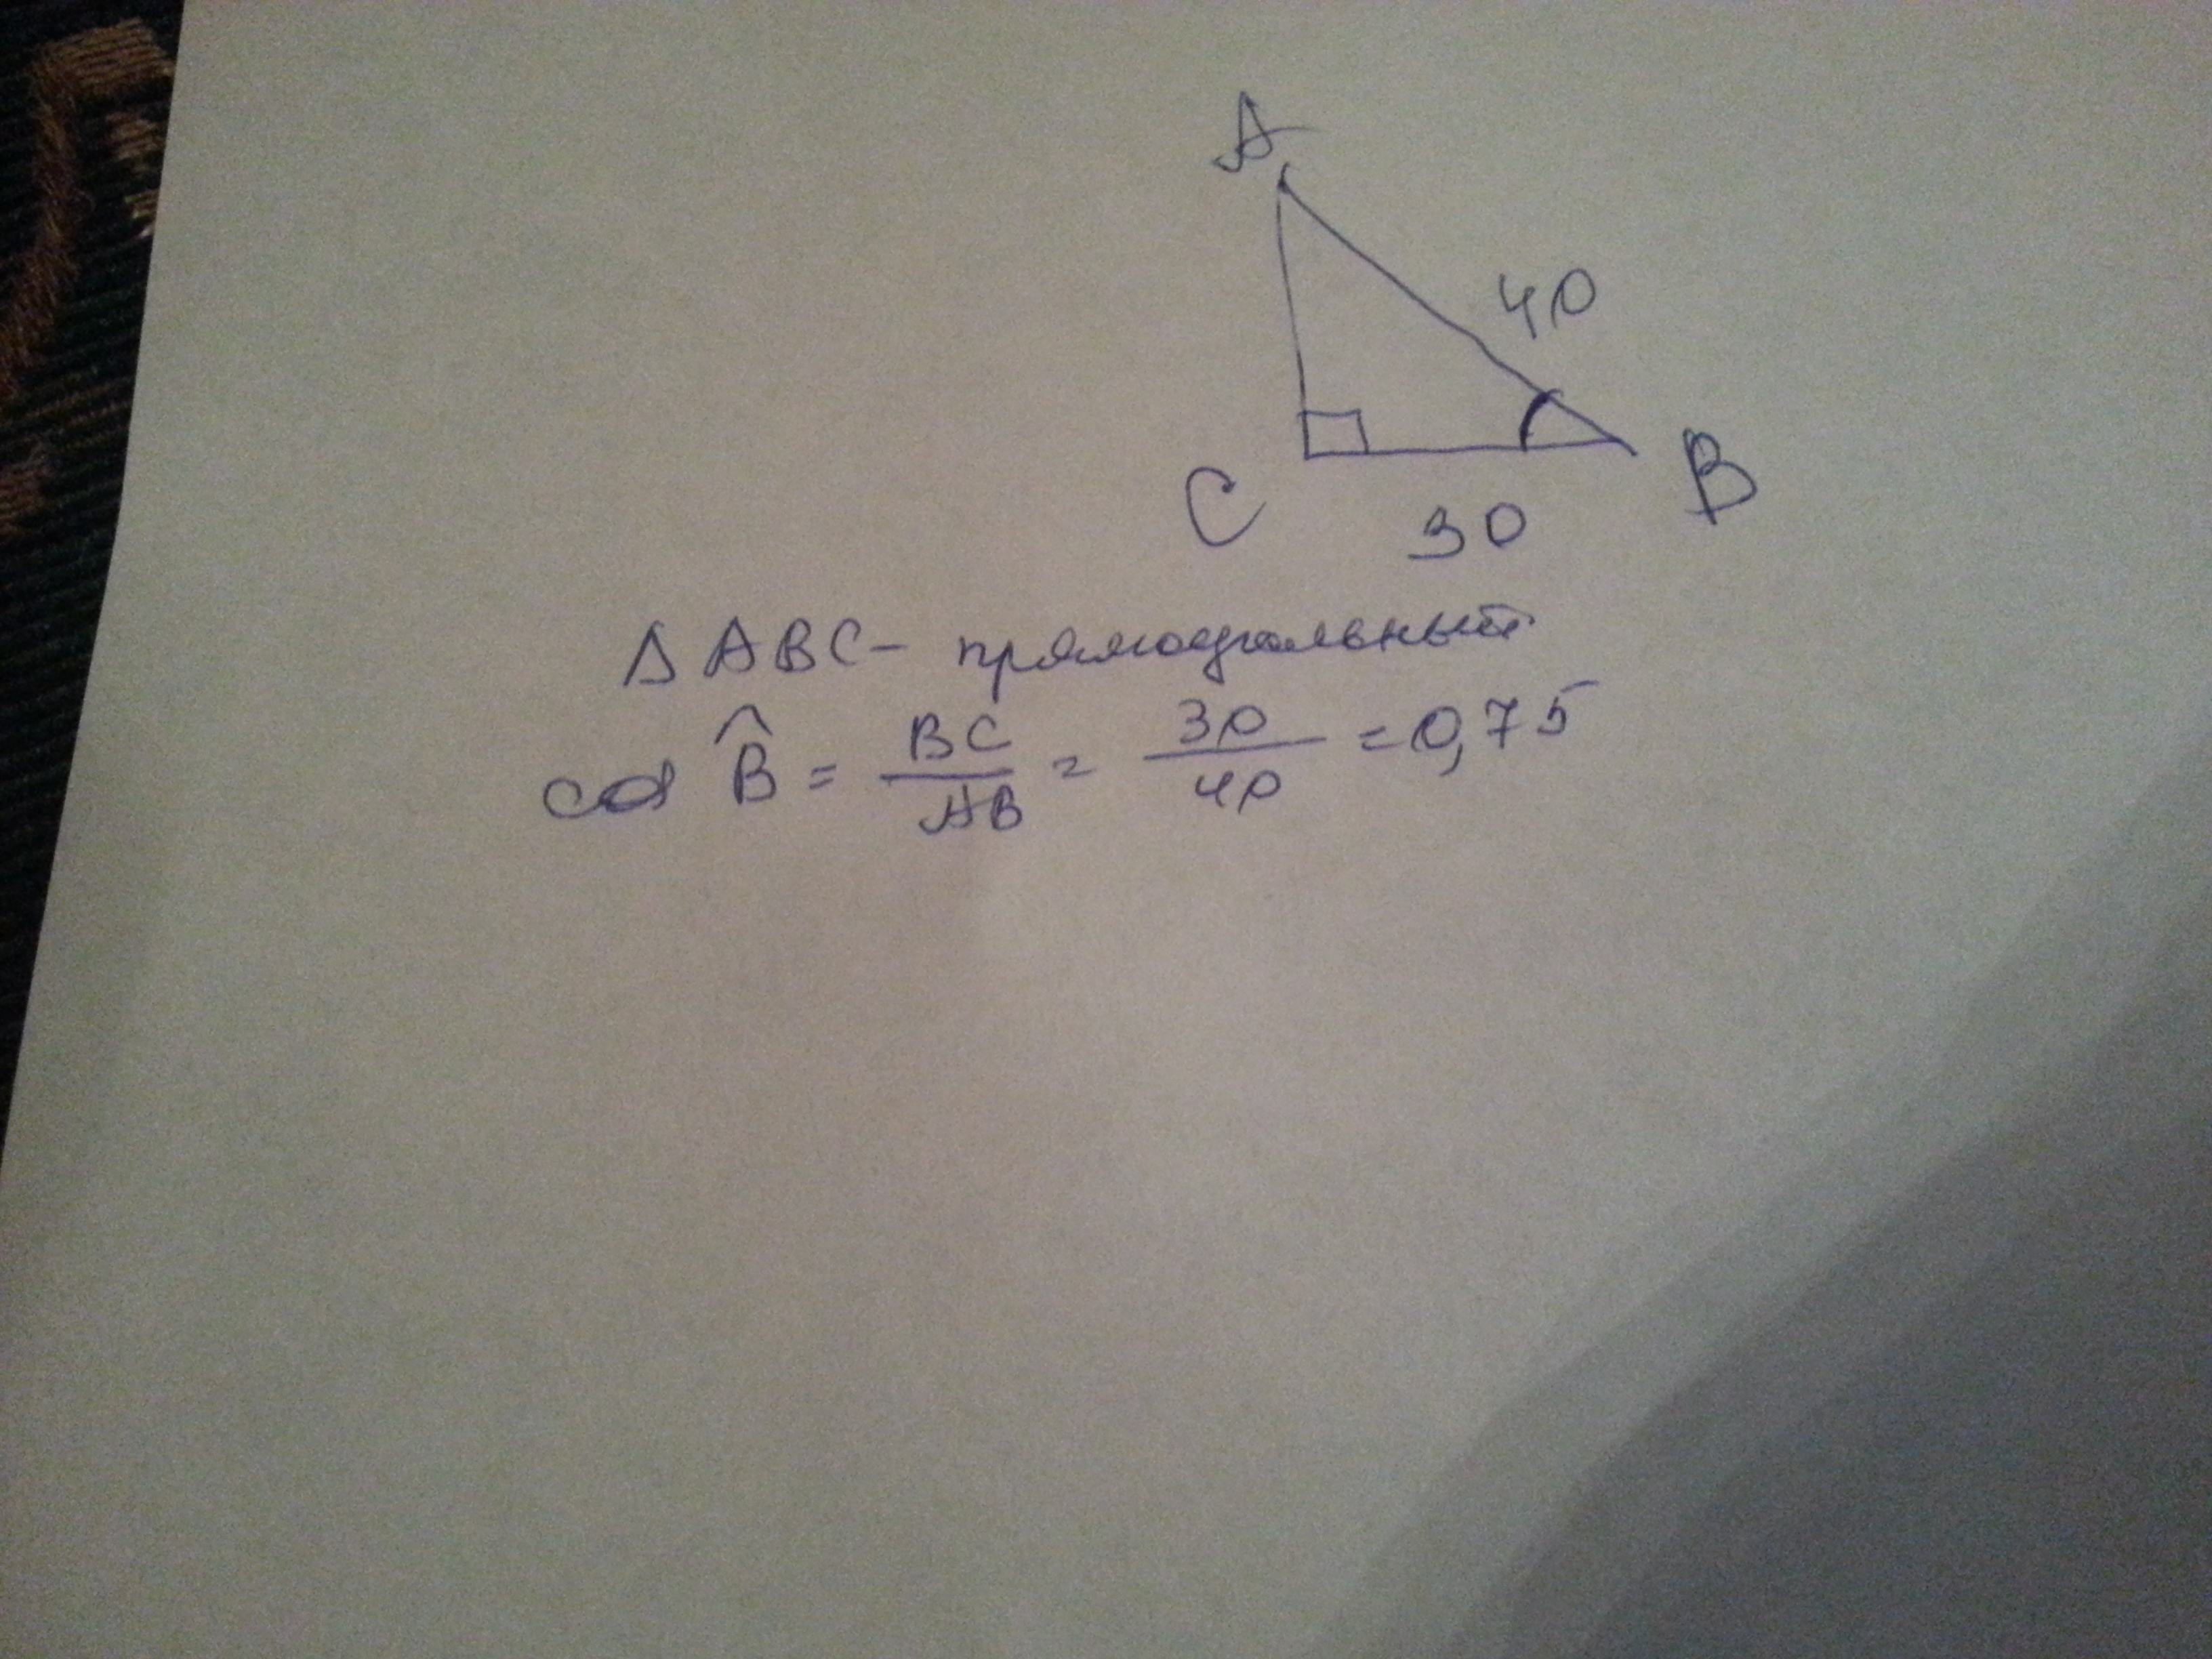 A
40
C
B
30
Δ ABC - прямоугольный
cos B̂ = BC/AB = 30/40 = 0,75